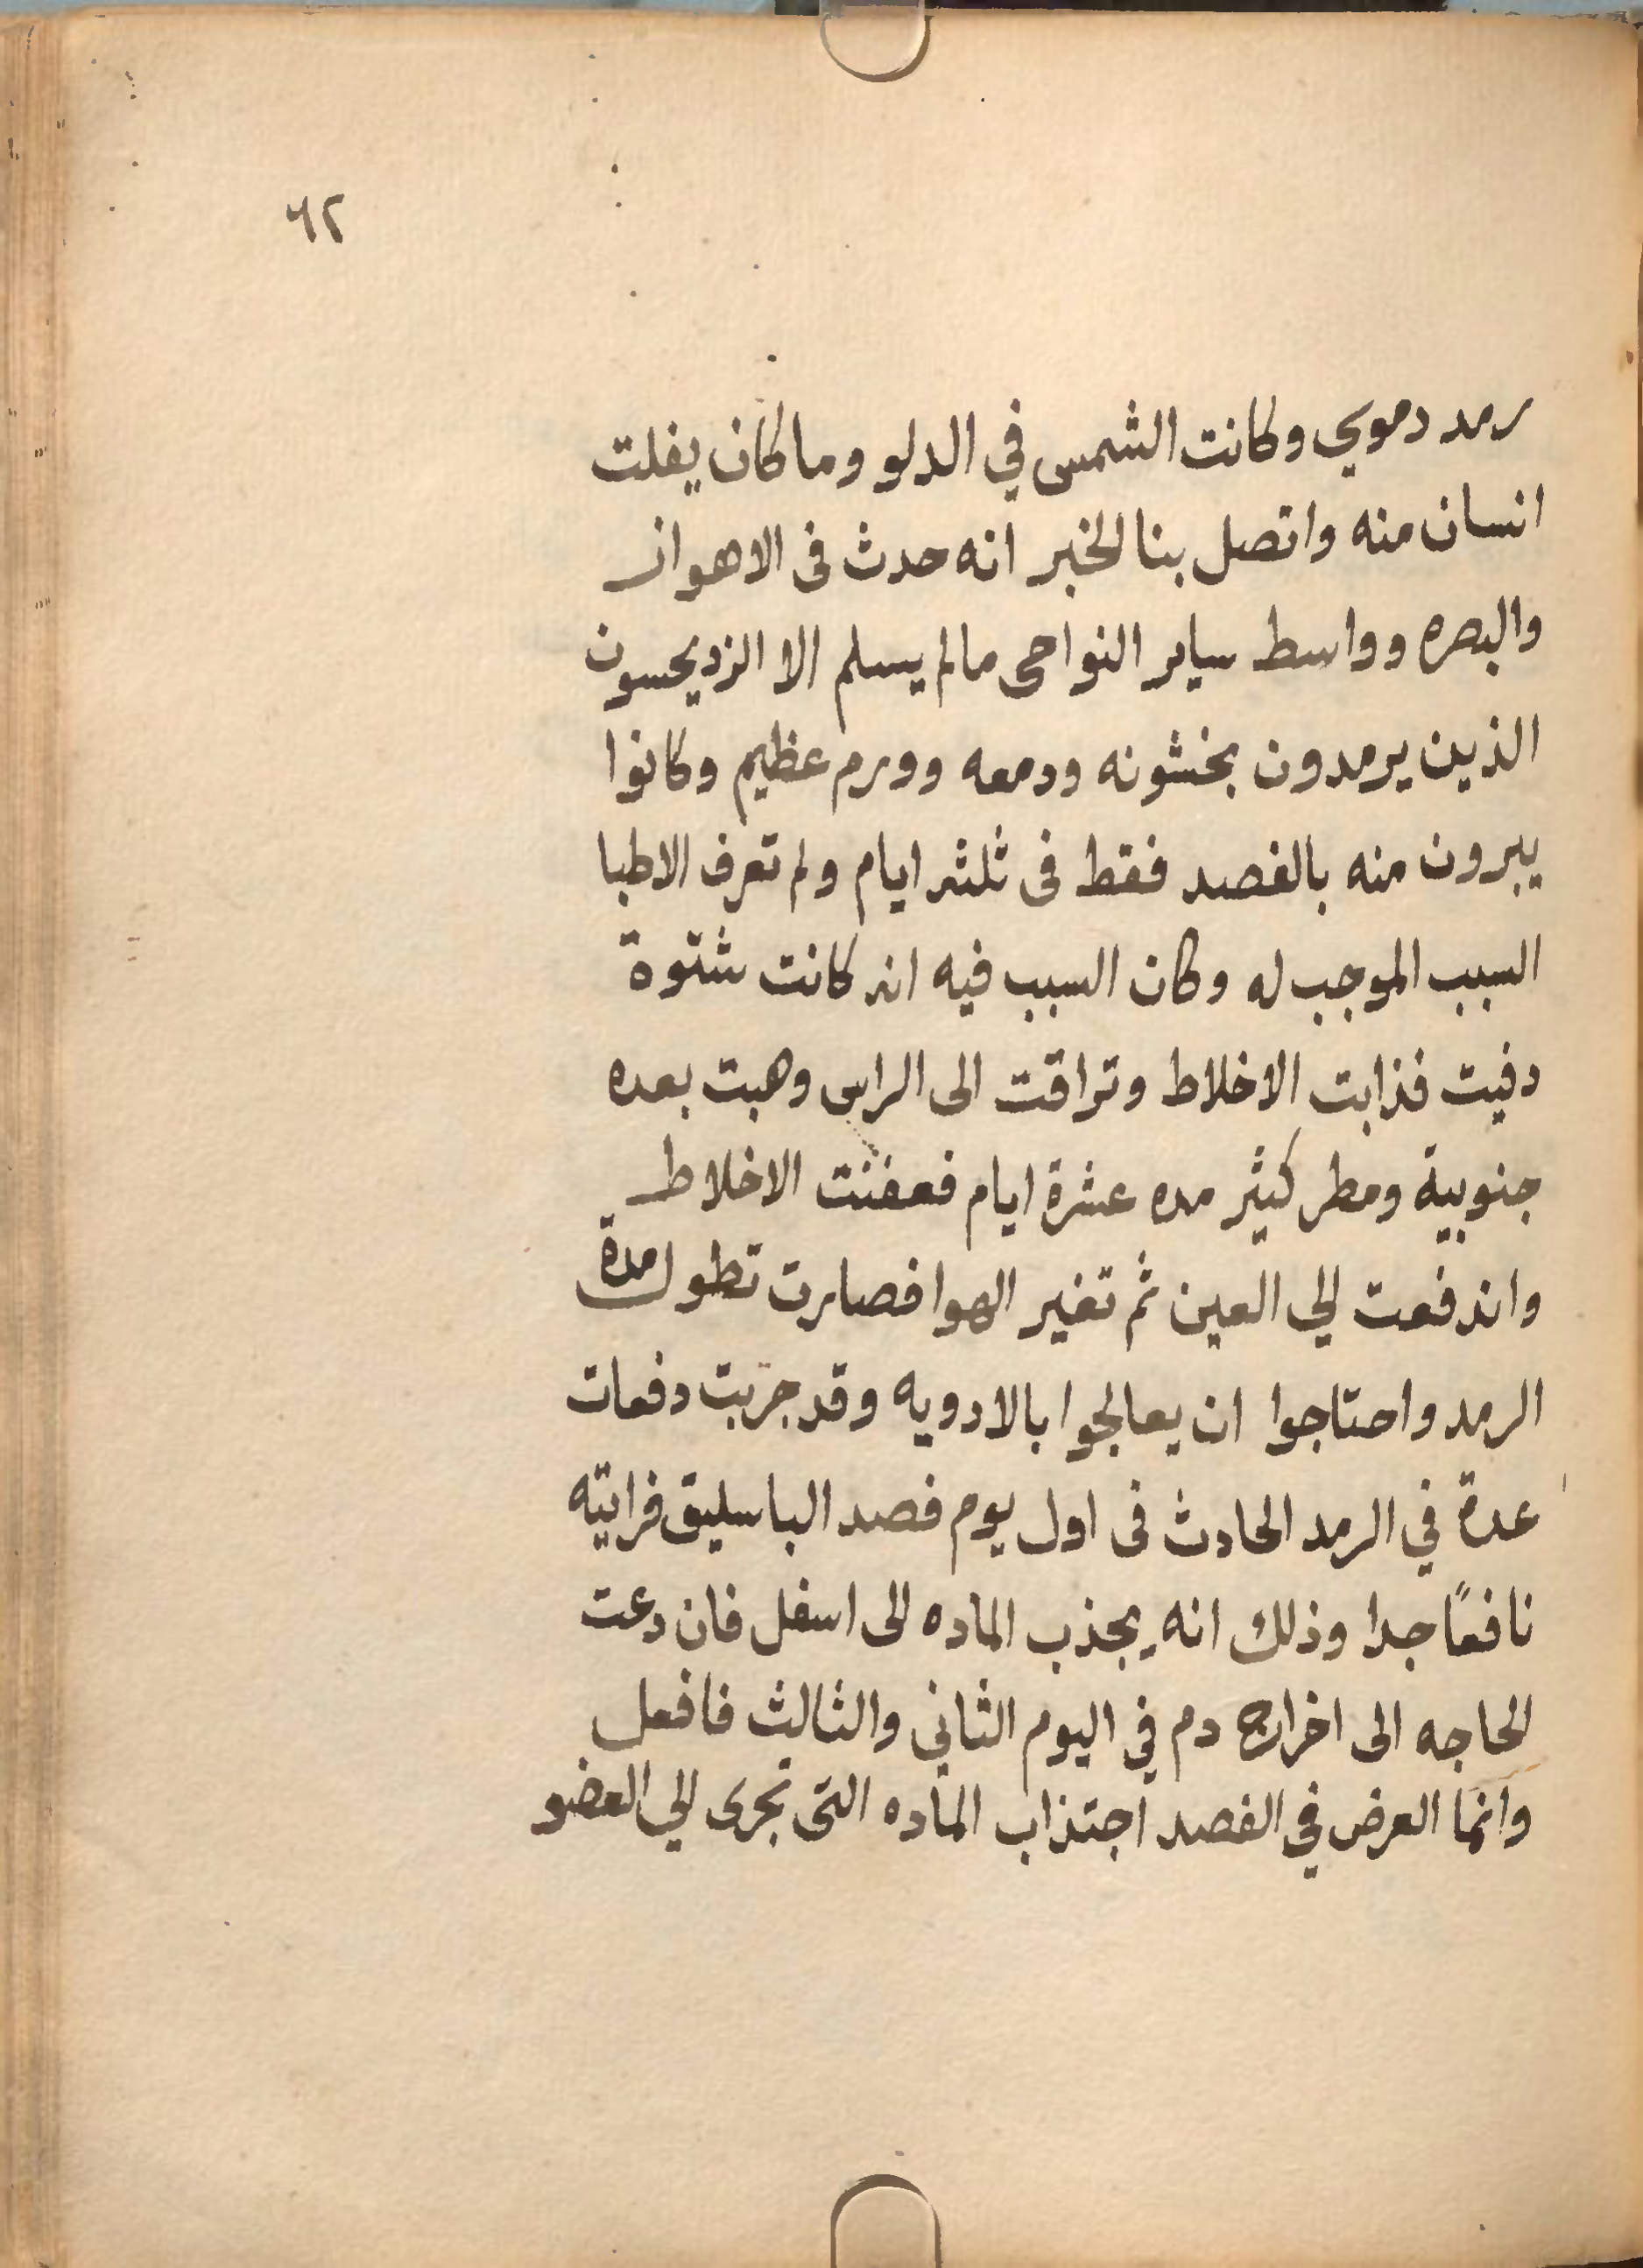 ٦٢
رمد دموي وكانت الشمس في الدلو وما كان يفلت
انسان منه واتصل بنا الخبر انه حدث فى الاهواز
والبصره وواسط ساير النواحى مالم يسلم الا
الذين يرمدون بخشونه ودمعه وورم عظيم وكانوا
يبرون منه بالفصد فقط فى ثلثه ايام ولم تعرف الاطبا
السبب الموجب له وكان السبب فيه انه كانت شتوة
دفيت فذابت الاخلاط وتراقت الى الراس وهبت بعده
جنوبية ومطر كثير مده عشرة ايام فعفنت الاخلاط
واندفعت الي العين ثم تغير الهوا فصارت تطول مدة
الرمد واحتاجوا ان يعالجوا بالادويه وقد جربت دفعات
عدة في الرمد الحادث فى اول يوم فصد الباسليق فرايته
نافعًا جدا وذلك انه يجذب الماده الى اسفل فان دعت
الحاجه الى اخراج دم في اليوم الثاني والثالث فافعل
وانما العرض في الفصد اجتذاب الماده التى تجرى الي العضو